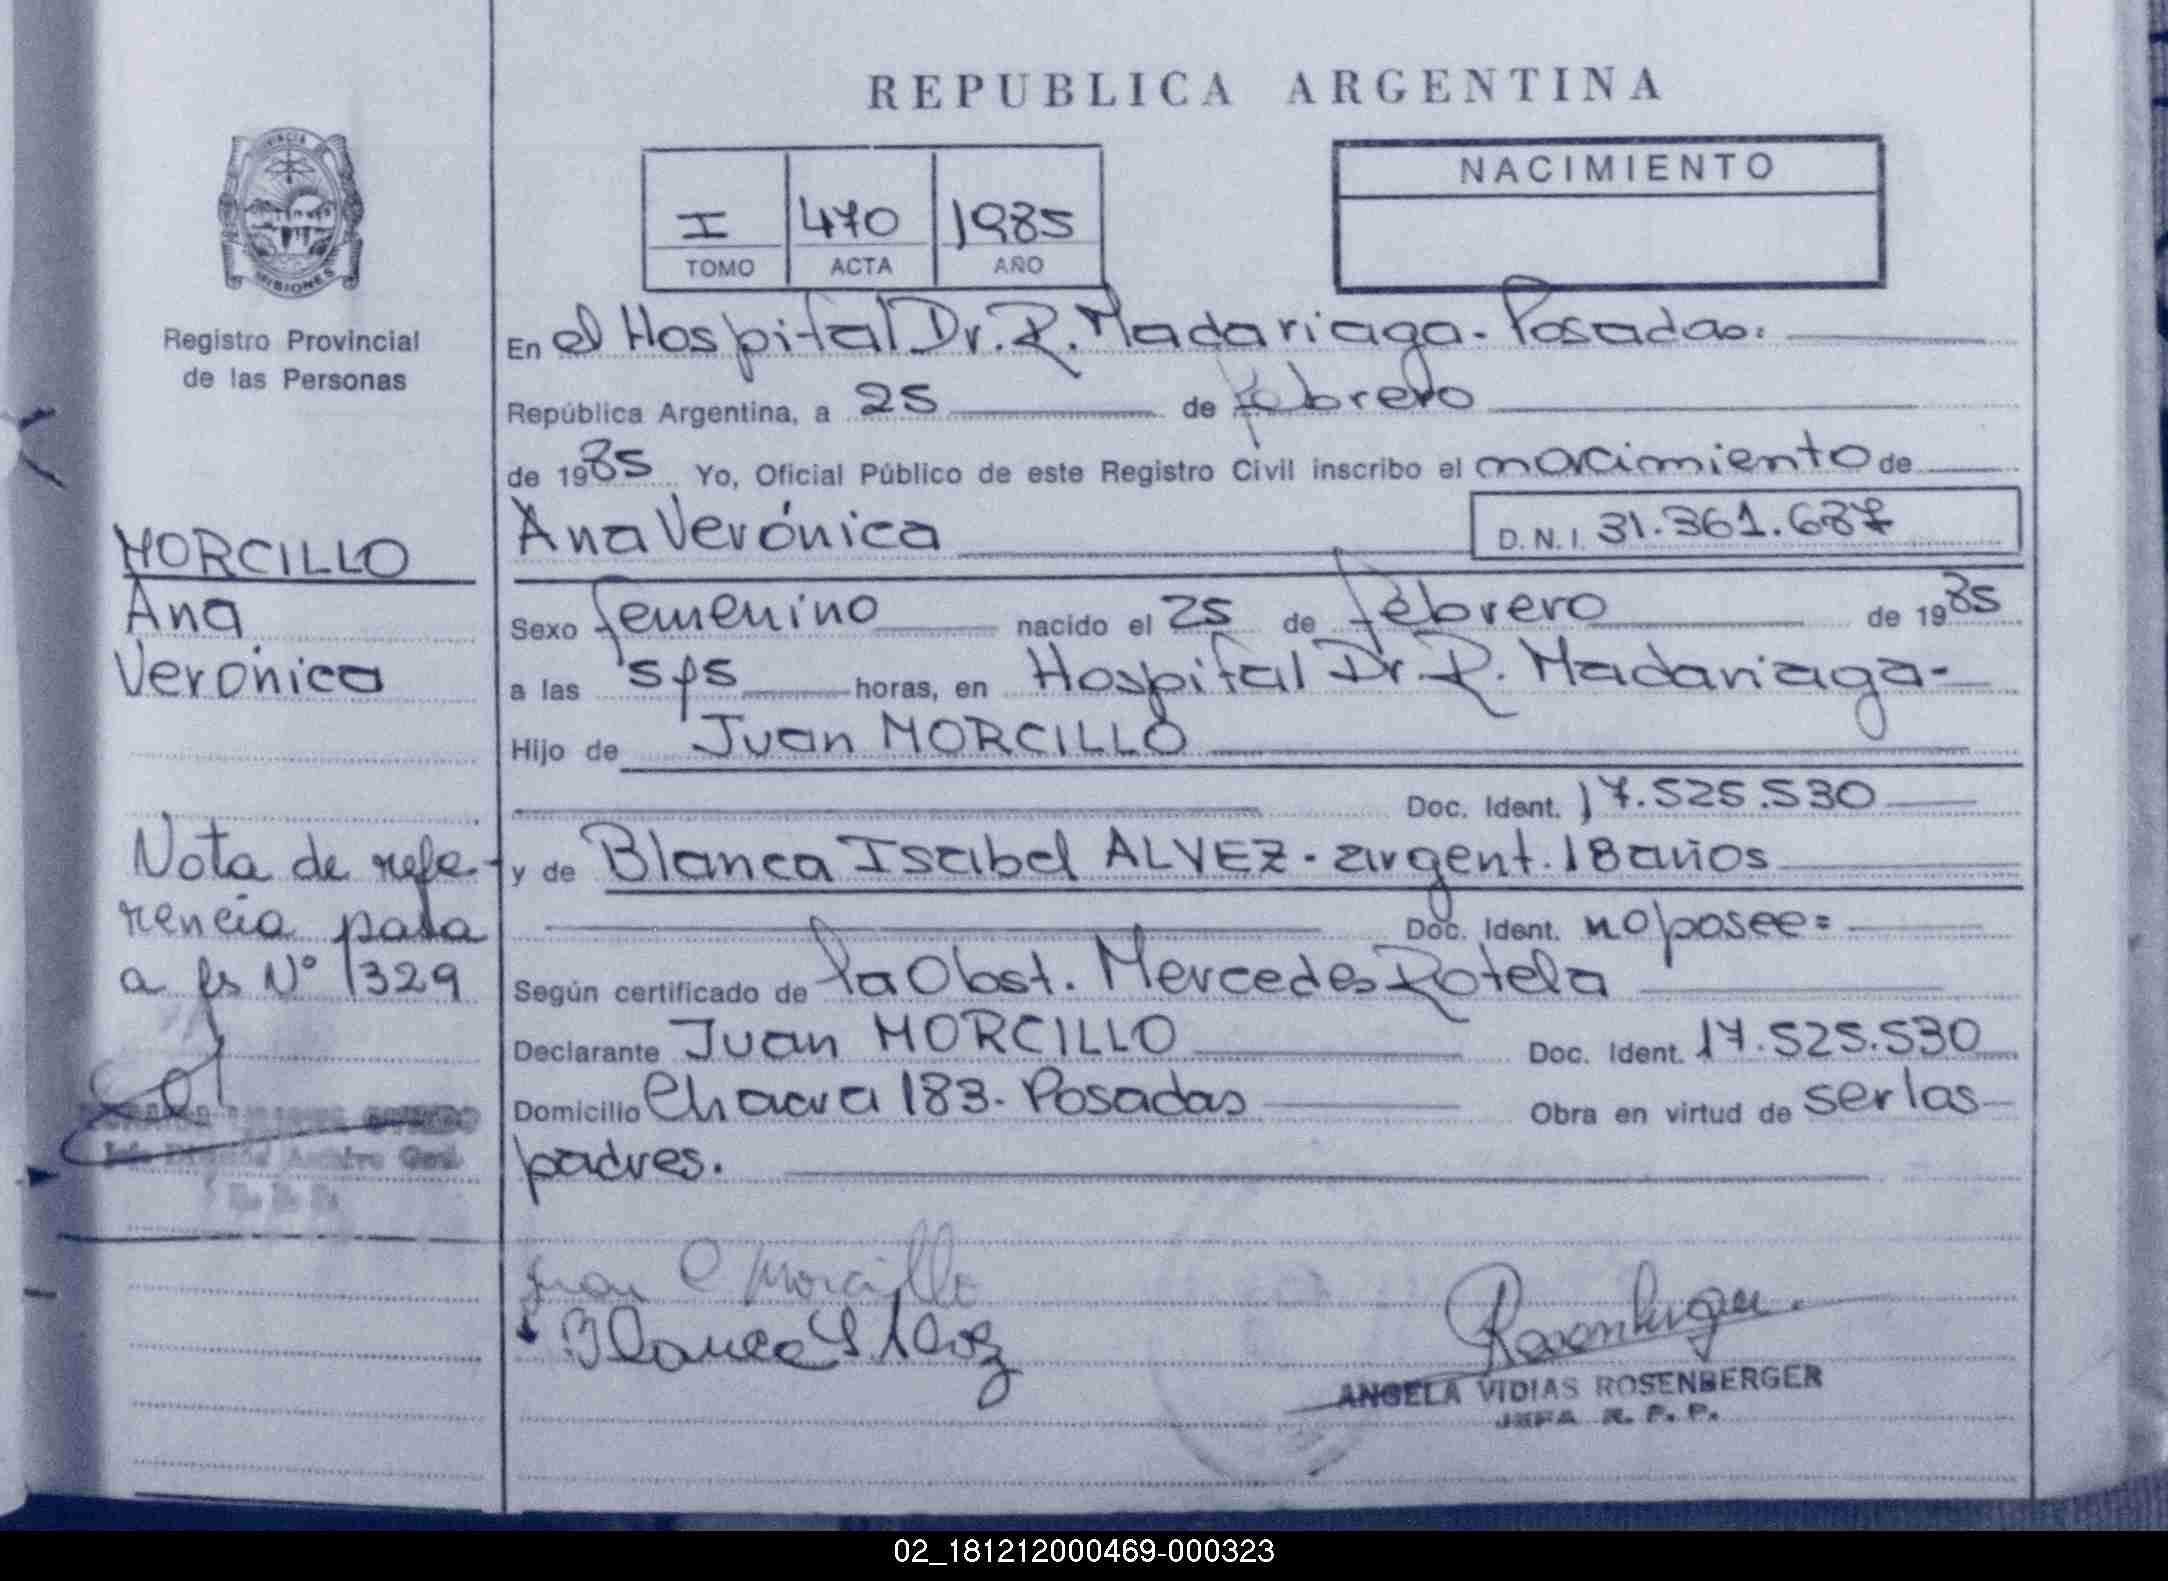 REPUBLICA ARGENTINA
PROVINCIA
MISIONES
Registro Provincial
de las Personas
I 470 1985
TOMO ACTA AÑO
NACIMIENTO
En el Hospital Dr. R. Madariaga - Posadas.
República Argentina, a 25 de febrero
de 1985 Yo, Oficial Público de este Registro Civil inscribo el nacimiento de
Ana Verónica D.N.I. 31.361.687
Sexo femenino nacido el 25 de febrero de 1985
a las horas, en Hospital Dr. R. Madariaga-
Hijo de Juan MORCILLO
Doc. Ident. 17.525.530
y de Blanca Isabel ALVEZ - argent. 18 años
Doc. Ident. no posee=
Según certificado de la Obst. Mercedes Rotela
Declarante Juan MORCILLO Doc. Ident. 17.525.530
Domicilio Chacra 183 - Posadas Obra en virtud de ser los
padres.
MORCILLO
Ana
Verónica
Nota de refe-
rencia pasa
a fs Nº 1329
Juan C Morcillo
Blanca I Alvez
Rosenberger
ANGELA VIDIAS ROSENBERGER
JEFA R. P. P.
02_181212000469-000323